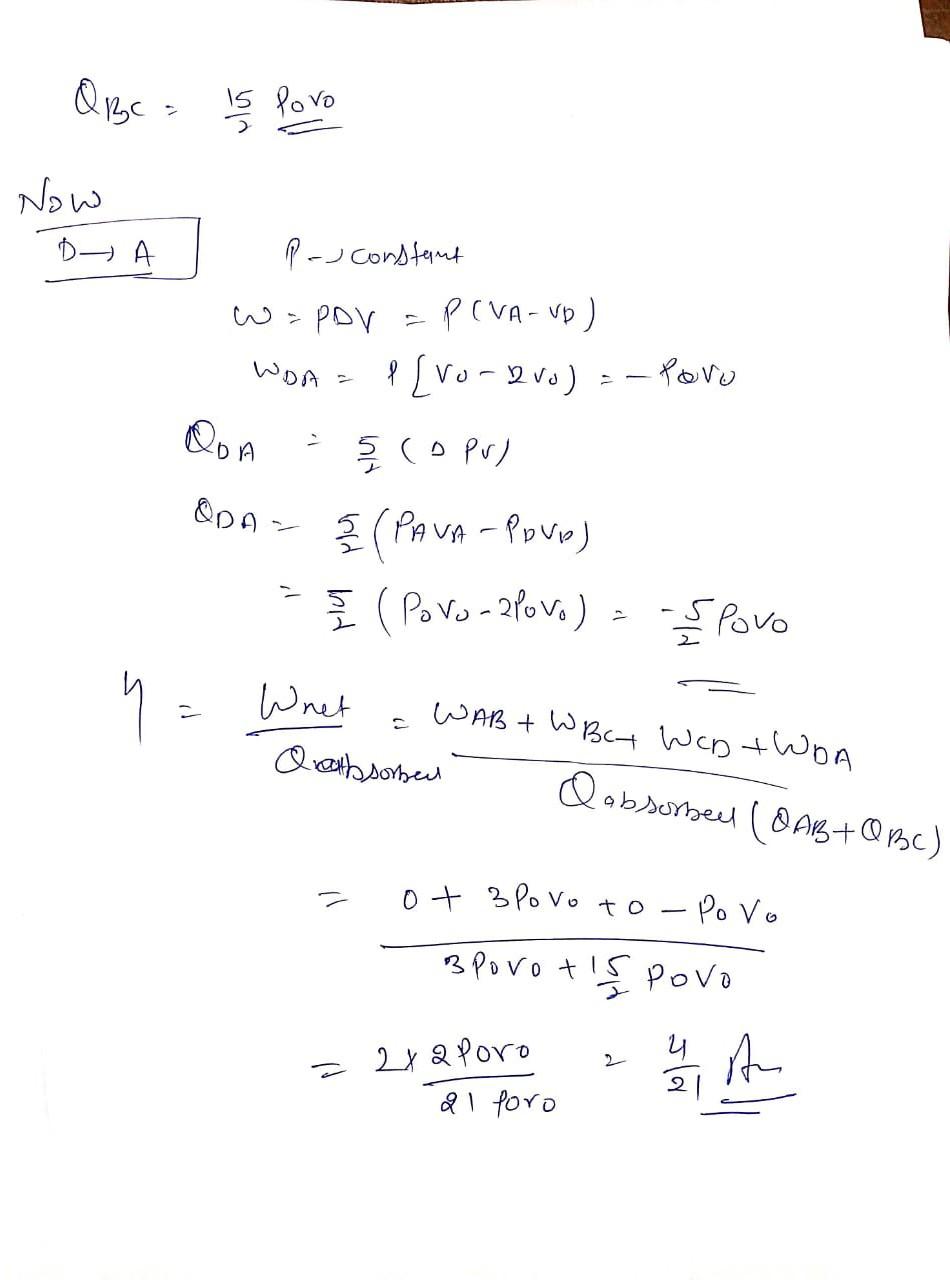 QBC = 15/2 PoVo
Now
D→A P→constant
W = PDV = P(VA-VD)
WDA = P[Vo-2Vo) = -PoVo
QDA = 5/2 (Δ PV)
QDA = 5/2 (PAVA-PDVD)
= 5/2 (PoVo-2PoVo) = -5/2 PoVo
η = Wnet / Qabsorbed = WAB + WBC + WCD + WDA / Qabsorbed (QAB+QBC)
= 0 + 3PoVo + 0 - PoVo / 3PoVo + 15/2 PoVo
= 2x2PoVo / 21 PoVo = 4/21 An